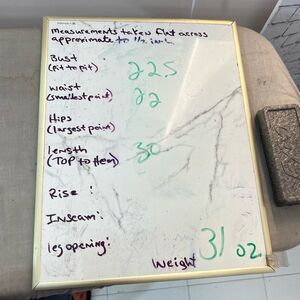 Measurements taken flat across
approximate to 1/2 inch
Bust :
(pit to pit) 22.5
Waist :
(smallest point) 22
Hips :
(largest point)
Length :
(TOP to Hem) 30
Rise :
Inseam :
leg opening :
Weight 31 oz.